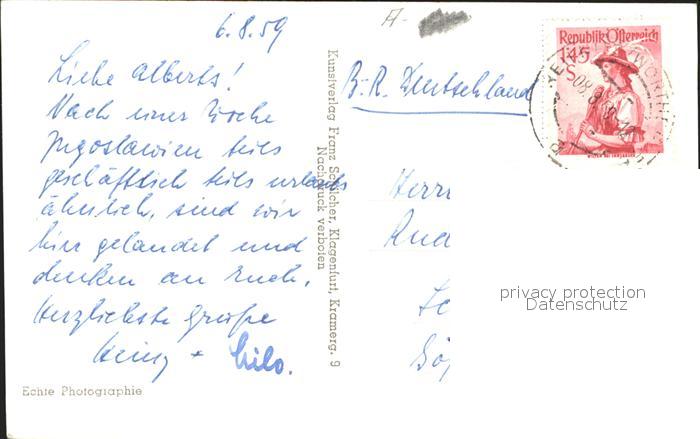 6.8.59
Liebe Alberts!
Nach einer Woche
Jugoslawien teils
geschäftlich teils urlaubs
ähnlich, sind wir
hier gelandet und
denken an Euch.
Herzlichste Grüße
Heinz + Lilo.
Echte Photographie
Kunstverlag Franz Schilcher, Klagenfurt, Kramerg. 9
Nachdruck verboten
A-
B.-R. Deutschland
Herrn
Republik Österreich
1.45
S
privacy protection
Datenschutz